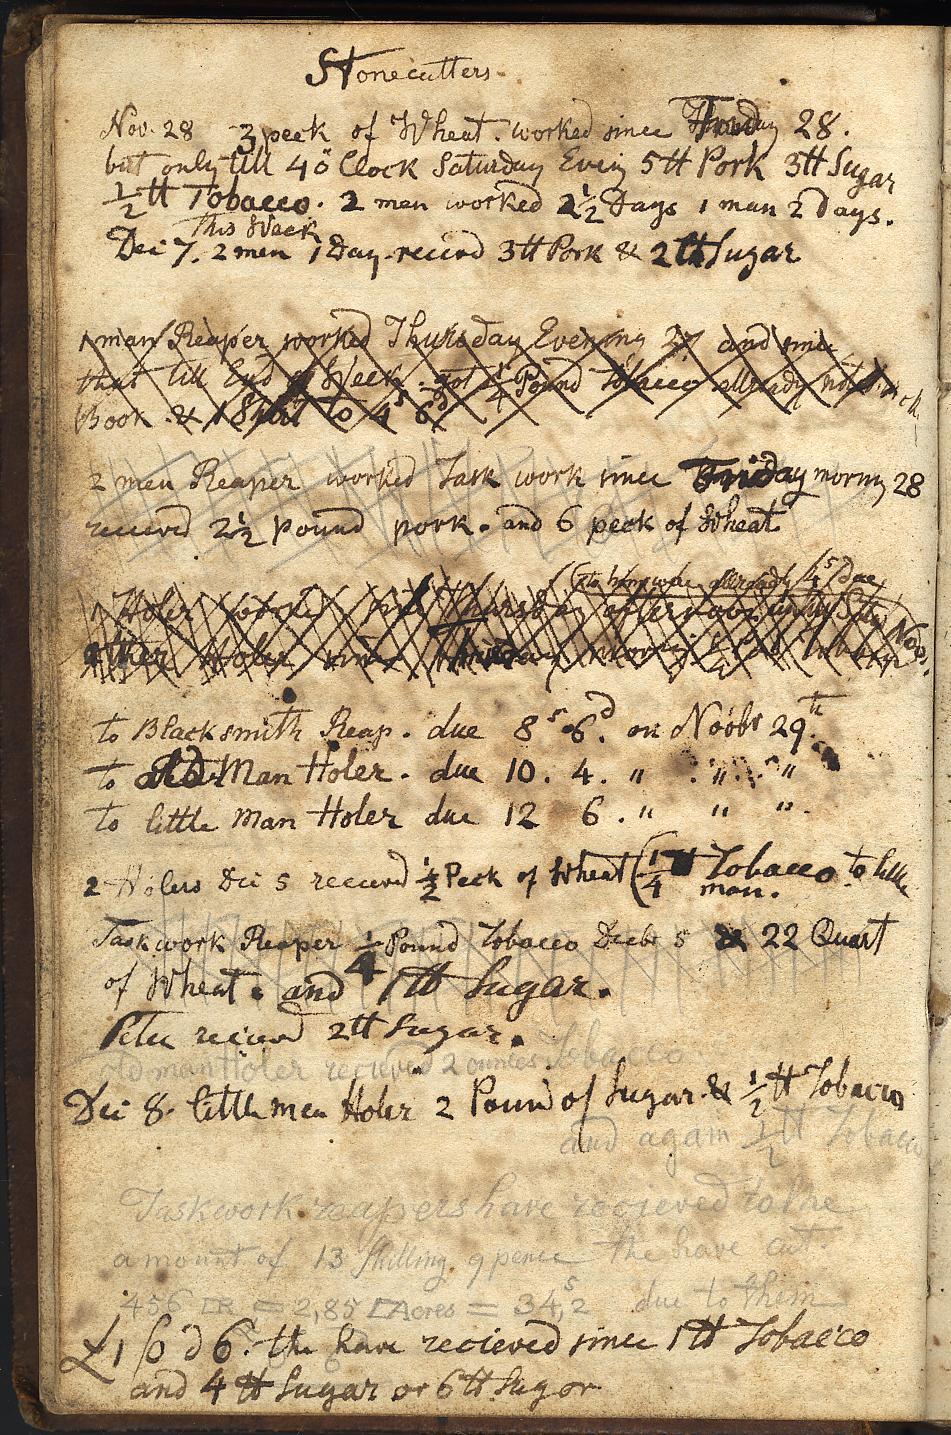 Stonecutters.
Nov. 28 3 peck of Wheat. worked since Friday 28.
but only till 4 o Clock Saturday Eveng 5 tt Pork 3 tt Sugar
1/2 tt Tobacco. 2 men worked 2 1/2 Days 1 man 2 Days.
This Week
Dec 7. 2 men 1 Day. recived 3 tt Pork & 2 tt Sugar
1 man Reaper worked Thursday Evening 27 and since
that till End of Week. got 1/4 Pound Tobacco allready noted
Book & 1 Shirt to 4 s 6 d
2 men Reaper worked Task work since Friday morng 28
recieved 2 1/2 Pound pork. and 6 peck of Wheat
to him was allready 4 s due
1 Holer worked till Thursday afternoon
Nov.
other Holer since Thursday morning
to Blacksmith Reap. due 8 s 6 d. on Novbr 29 th
to old Man Holer. due 10. 4. " " "
to little Man Holer due 12 6. " " "
2 Holers Dec 5 recieved 1/2 Peck of Wheat (1/4 tt Tobacco to little
man.
Taskwork Reaper 1/4 Pound Tobacco Decbr 5 & 22 Quart
of Wheat. and 1 tt Sugar.
Peter recieved 2 tt Sugar.
old man Holer recieved 2 ounces Tobacco
Dec 8. little man Holer 2 Pound of Sugar & 1/2 tt Tobacco
and again 1/2 tt Tobacco
Taskwork reapers have recieved to the
amount of 13 Shilling 9 pence the have cut.
456 □R = 2,85 □Acres = 34,2 s due to them
£1 6 d 6. the have recieved since 1 tt Tobacco
and 4 tt Sugar or 6 tt Sugar